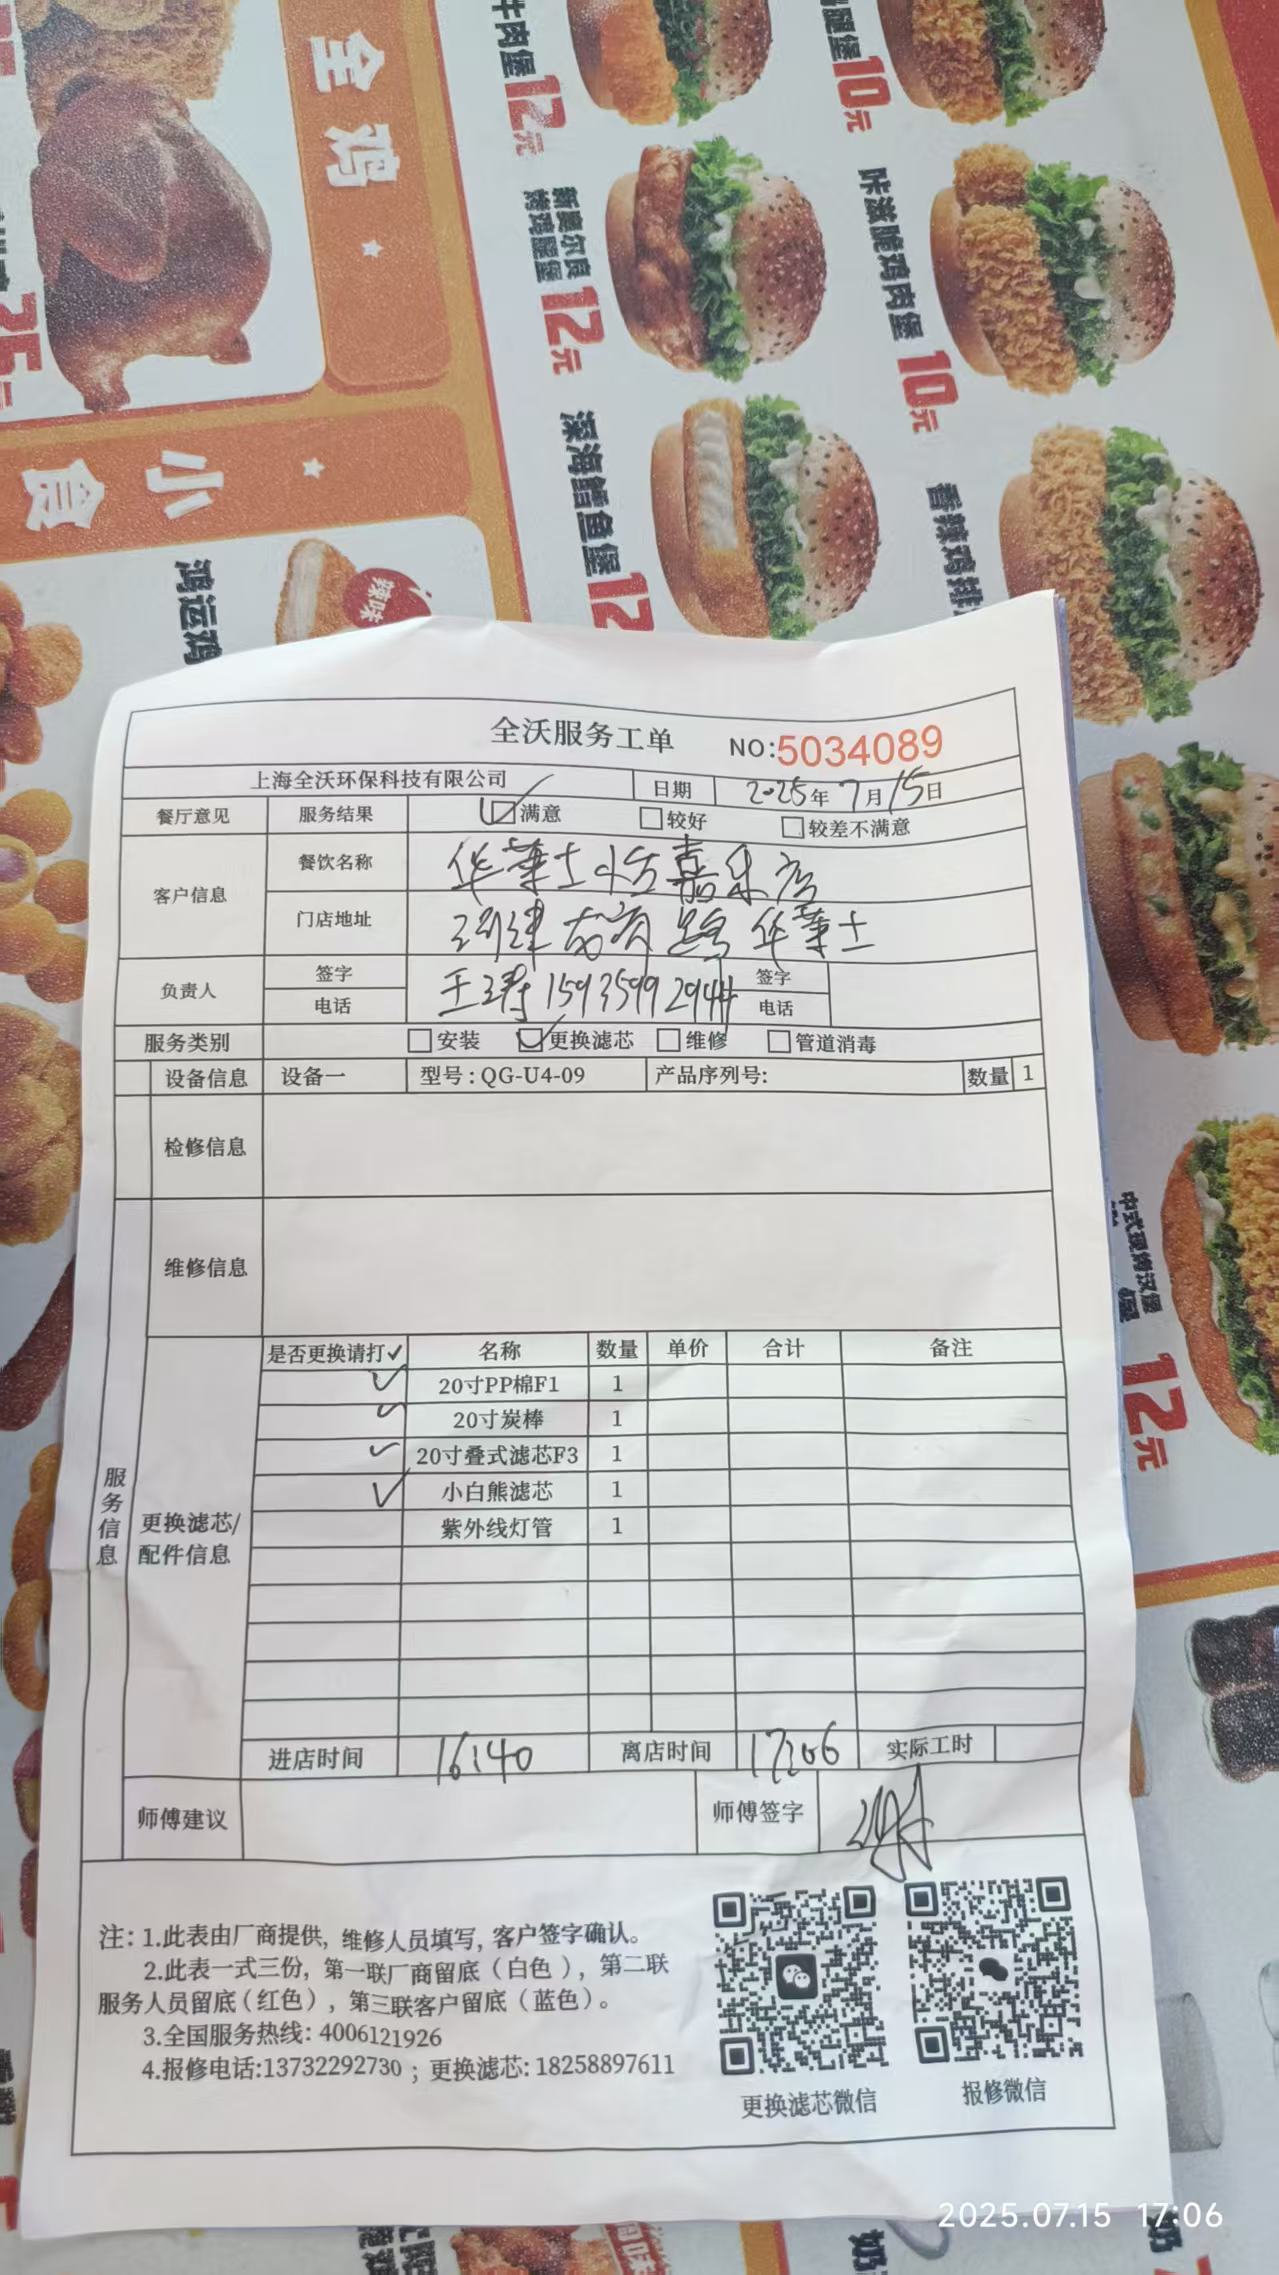 全鸡
25元
小食
鸿运鸡
辣味
牛肉堡12元
新奥尔良
烤鸡腿堡 12元
深海鳕鱼堡12
腿堡10元
咔滋脆鸡肉堡 10元
香辣鸡排
中式现烤汉堡
12元
全沃服务工单 NO:5034089
上海全沃环保科技有限公司 日期 2025年7月15日
餐厅意见 服务结果 满意 较好 较差不满意
客户信息 餐饮名称 华莱士 嘉 店
门店地址 路华莱士
负责人 签字 王 签字
电话 15935992944 电话
服务类别 安装 更换滤芯 维修 管道消毒
设备信息 设备一 型号:QG-U4-09 产品序列号: 数量 1
检修信息
维修信息
服务信息
更换滤芯/
配件信息
是否更换请打✓ 名称 数量 单价 合计 备注
✓ 20寸PP棉F1 1
✓ 20寸炭棒 1
✓ 20寸叠式滤芯F3 1
✓ 小白熊滤芯 1
紫外线灯管 1
进店时间 16:40 离店时间 17:06 实际工时
师傅建议 师傅签字
注: 1.此表由厂商提供, 维修人员填写, 客户签字确认。
2.此表一式三份, 第一联厂商留底(白色), 第二联
服务人员留底(红色), 第三联客户留底(蓝色)。
3.全国服务热线: 4006121926
4.报修电话:13732292730 ; 更换滤芯: 18258897611
更换滤芯微信 报修微信
2025.07.15 17:06